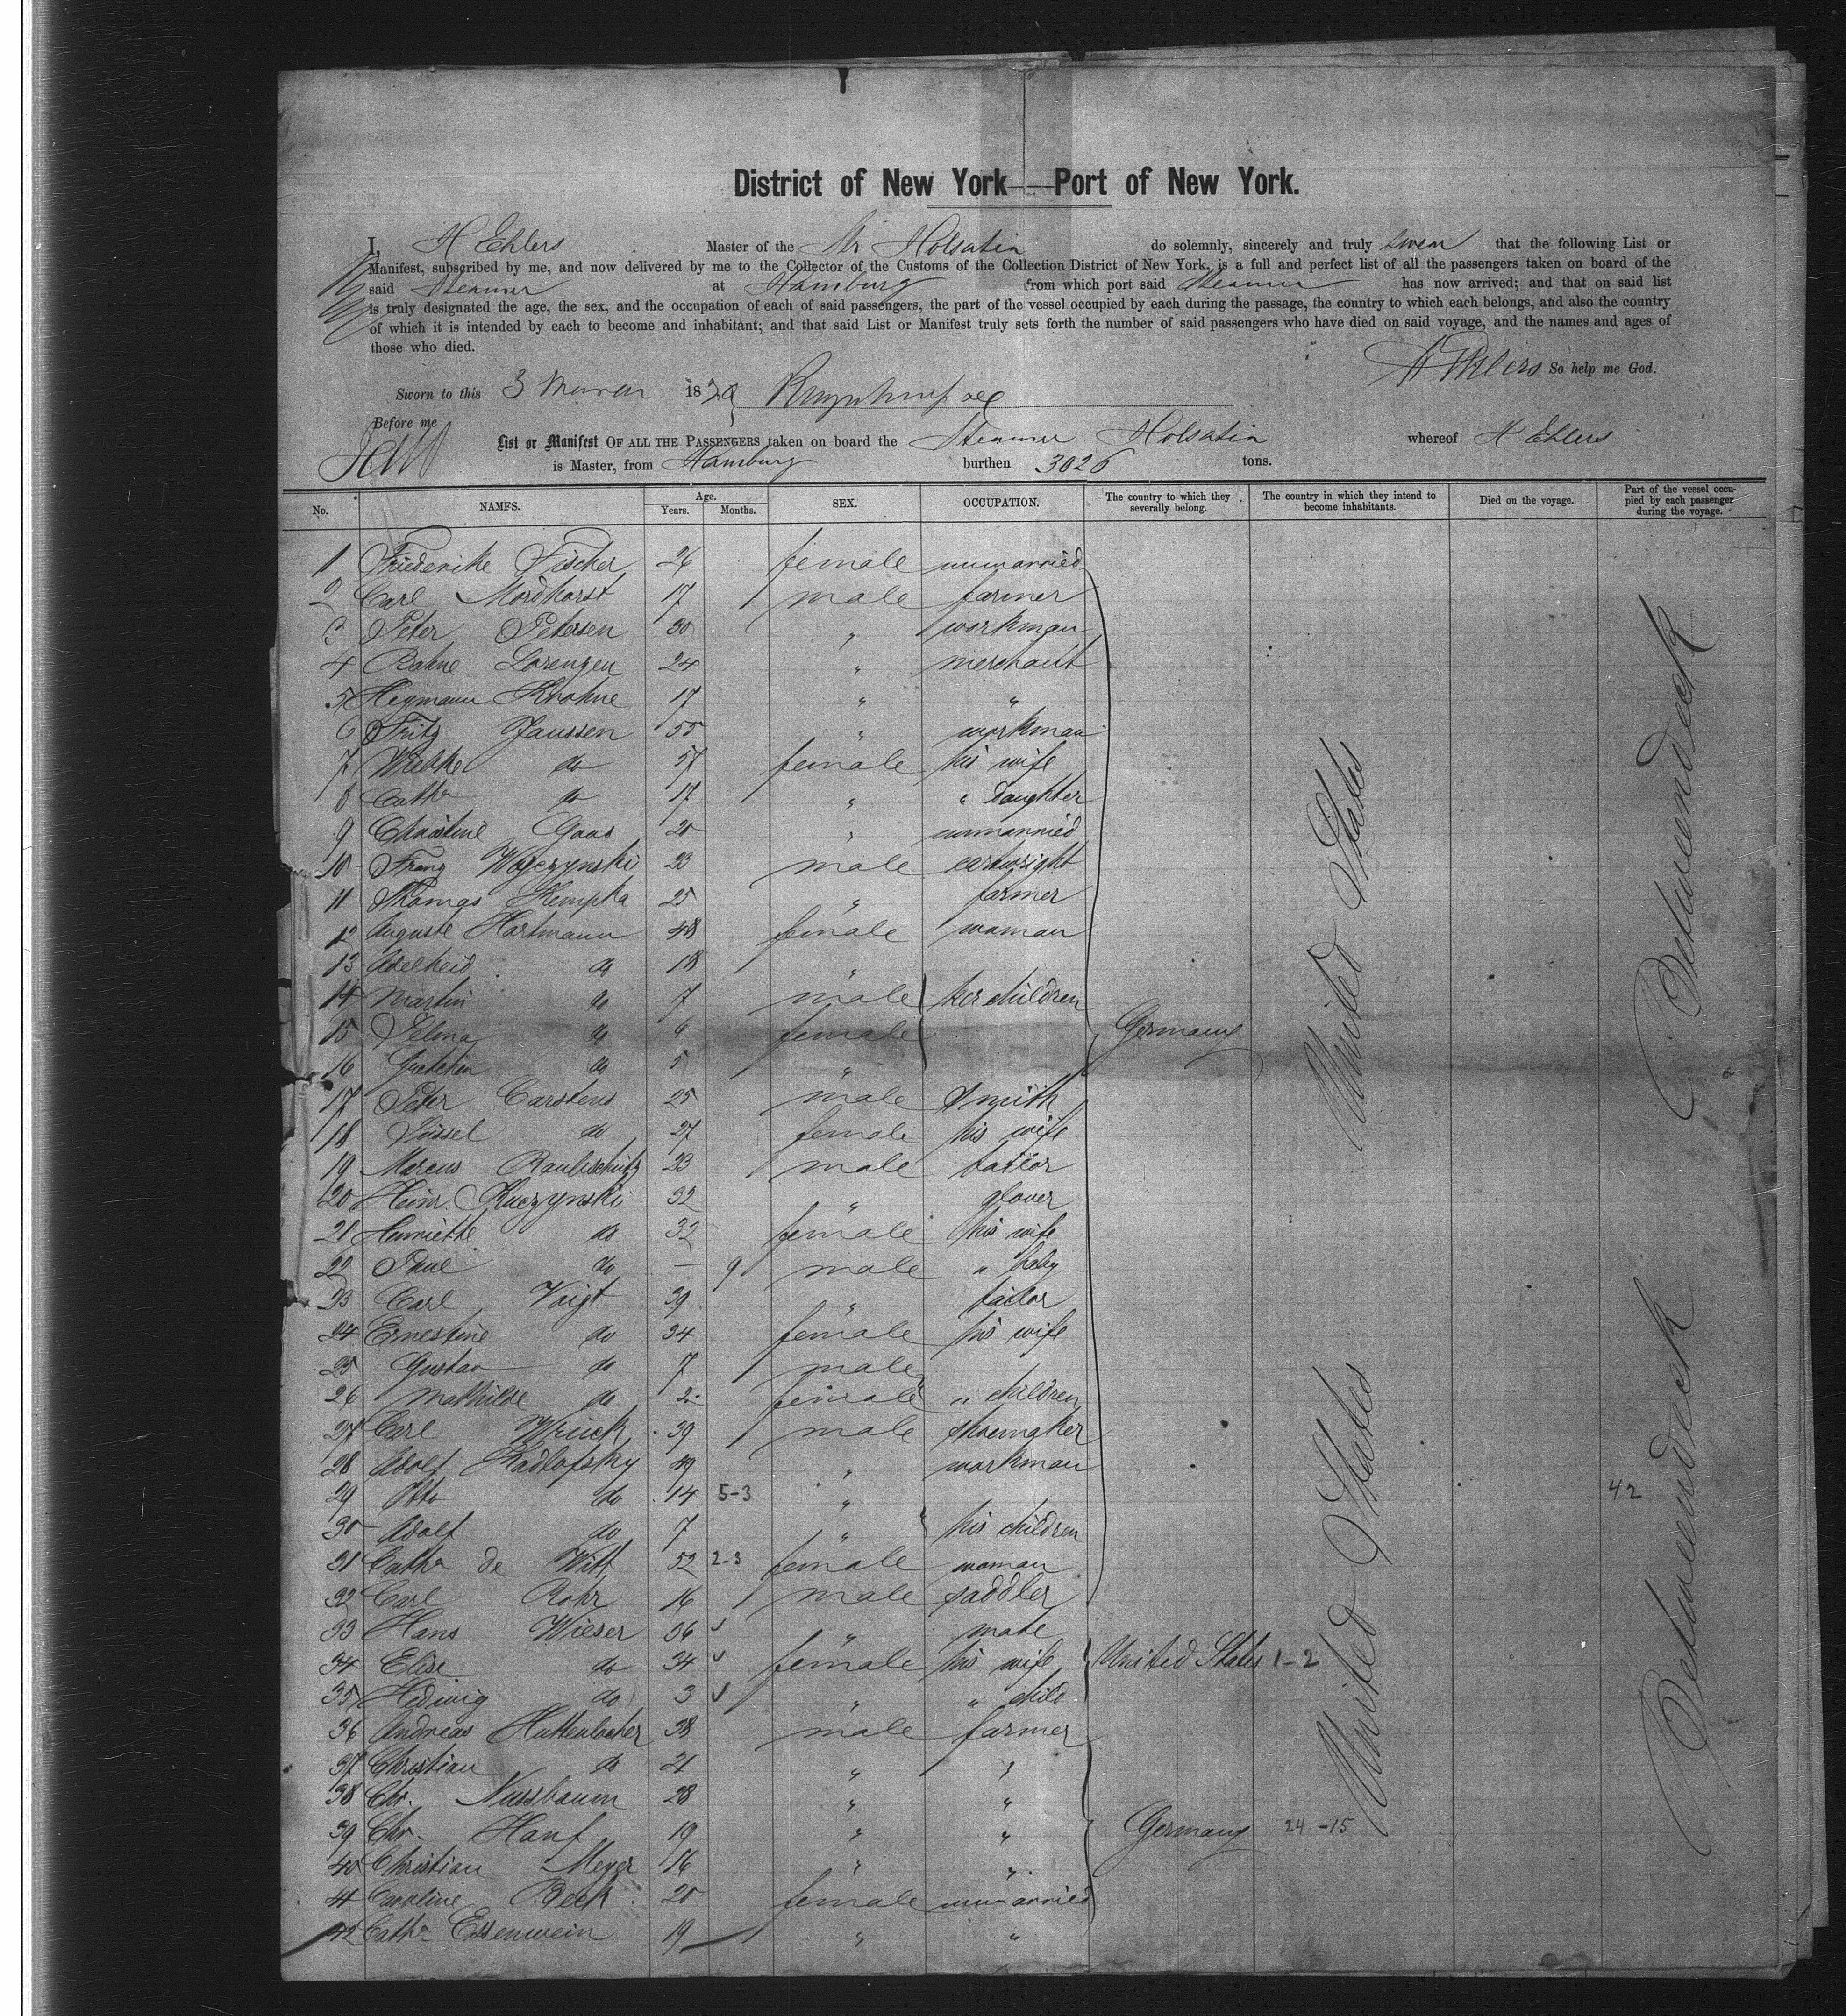 District of New York — Port of New York.
I, H Ehlers Master of the Str Holsatia do solemnly, sincerely and truly swear that the following List or
Manifest, subscribed by me, and now delivered by me to the Collector of the Customs of the Collection District of New York, is a full and perfect list of all the passengers taken on board of the
said Steamer at Hamburg from which port said Steamer has now arrived; and that on said list
is truly designated the age, the sex, and the occupation of each of said passengers, the part of the vessel occupied by each during the passage, the country to which each belongs, and also the country
of which it is intended by each to become and inhabitant; and that said List or Manifest truly sets forth the number of said passengers who have died on said voyage, and the names and ages of
those who died.
H Ehlers So help me God.
Sworn to this 3 March 18
Before me
List or Manifest OF ALL THE PASSENGERS taken on board the Steamer Holsatia whereof H Ehlers
is Master, from Hamburg burthen 3026 tons.
No. NAMES. Age. Years. Months. SEX. OCCUPATION. The country to which they severally belong. The country in which they intend to become inhabitants. Died on the voyage. Part of the vessel occupied by each passenger during the voyage.
1 Friederike Fischer 26 female unmarried
2 Carl Mordhorst 17 male farmer
3 Peter Petersen 30 " workman
4 Bahne Lorenzen 24 " merchant
5 Heymann Krohne 17 " "
6 Fritz Janssen 55 " workman
7 Wiebke do 57 female his wife
8 Catha do 17 " " daughter
9 Christine Goos 20 " unmarried
10 Franz Woyczynski 23 male cartwright
11 Thomas Kempka 25 " farmer
12 Auguste Hartmann 48 female woman
13 Adelheid do 18 "
14 Martin do 7 male her children
15 Selma do 6 female Germany
16 Gretchen do 5 "
17 Peter Carstens 25 male smith
18 do 27 female his wife
19 Marcus 23 male tailor
20 Heinr. Kuczynski 32 " glover
21 Henriette do 32 female his wife
22 Paul do — 9 male " baby
23 Carl Voigt 39 " tailor
24 Ernestine do 34 female his wife
25 Gustav do 7 male
26 Mathilde do 2 female " children
27 Carl Wruck 39 male shoemaker
28 Adolf Radlofsky 49 " workman
29 Otto do 14 5-3 " 42
30 Adolf do 7 " his children
31 Catha de Witt 52 2-3 female woman
32 Carl Rohr 16 male saddler
33 Hans Wieser 36 " mate
34 Elise do 34 female his wife United States 1-2
35 Hedwig do 3 " " child
36 Andreas Huttenlocher 38 male farmer
37 Christian do 21 " "
38 Chr. Nussbaum 28 " "
39 Chr. Hanf 19 " " Germany 24-15
40 Christian Meyer 16 " "
41 Caroline Beck 20 female unmarried
42 Catha Essenwein 19 " "
United States
United States
Betweendeck
Betweendeck